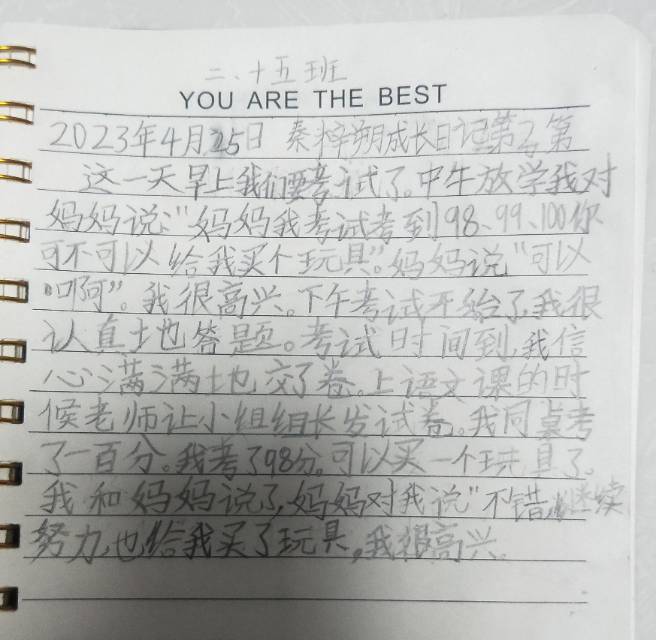 二、十五班
YOU ARE THE BEST
2023年4月25日 秦梓朔成长日记第2第
这一天早上我们要考试了。中午放学我对
妈妈说:"妈妈我考试考到98、99、100你
可不可以给我买个玩具"。妈妈说"可以
啊"。我很高兴。下午考试开始了,我很
认真地答题。考试时间到,我信
心满满地交了卷。上语文课的时
候老师让小组组长发试卷。我同桌考
了一百分。我考了98分。可以买一个玩具了。
我和妈妈说了,妈妈对我说"不错,继续
努力,也给我买了玩具,我很高兴。